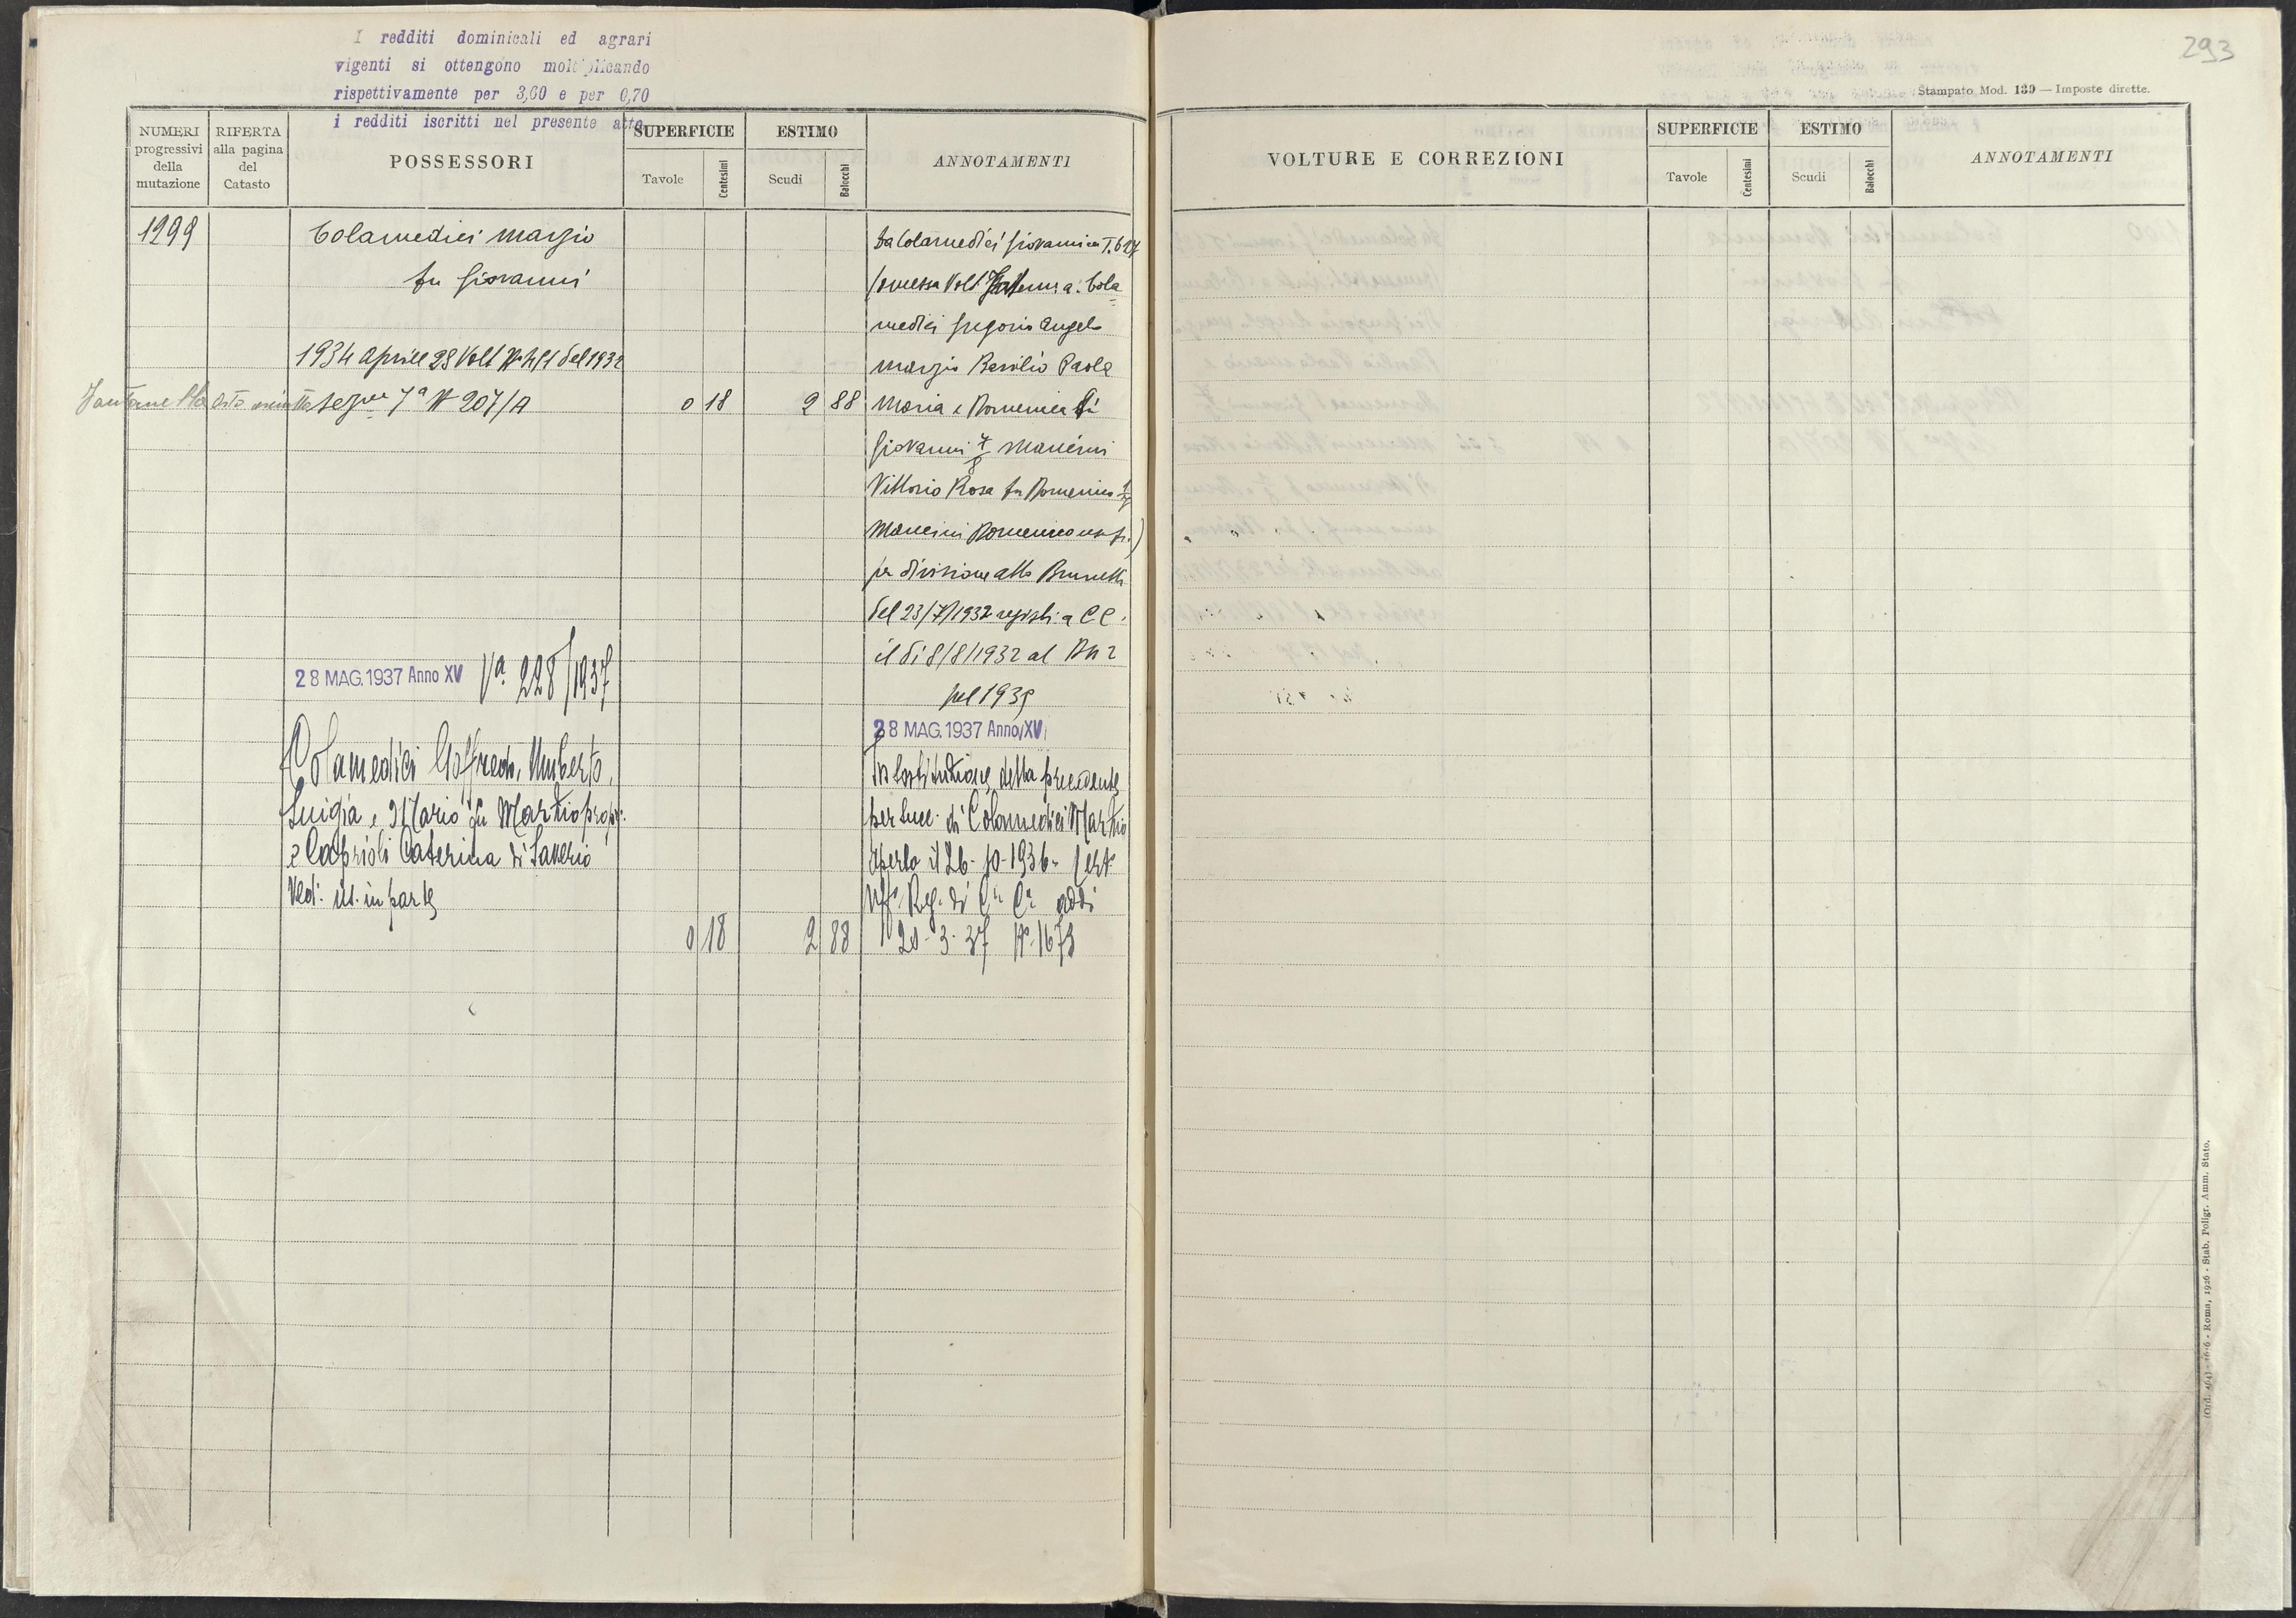 I redditi dominicali ed agrari
vigenti si ottengono moltiplicando
rispettivamente per 3,60 e per 0,70
i redditi iscritti nel presente atto
NUMERI progressivi della mutazione
RIFERTA alla pagina del Catasto
POSSESSORI
SUPERFICIE
Tavole
Centesimi
ESTIMO
Scudi
Baiocchi
ANNOTAMENTI
1299
Colamedici Marzio
fu Giovanni
1934 Aprile 28 Volt
del 1932
Sezne 7a N 207/A
0 18
2 88
da Colamedici Giovanni
Volt
a. Cola
medici Gregorio Angelo
Marzio Basilio Paola
Maria e Domenica di
Giovanni 7/8 Mancini
Vittorio Rosa fu Domenico
Mancini Domenico usufr.)
per divisione atto Brunetti
del 23/7/1932 registr. a CC.
il dì 8/8/1932 al
pel 1935
28 MAG. 1937 Anno XV
Va. 228/1937
Colamedici Goffredo, Umberto,
Luigia e Mario fu Marzio propr.
e Caprioli Caterina di Saverio
Ved: us. in parte
0 18
2 88
28 MAG. 1937 Anno XV
In sostituzione della precedente
per succ. di Colamedici Marzio
aperta il 26-10-1936-
Uff. Reg. di Ca Ca addì
20-3-37 N. 1673
293
Stampato Mod. 139 — Imposte dirette.
VOLTURE E CORREZIONI
SUPERFICIE
Tavole
Centesimi
ESTIMO
Scudi
Baiocchi
ANNOTAMENTI
Roma, 1926 - Stab. Poligr. Amm. Stato.